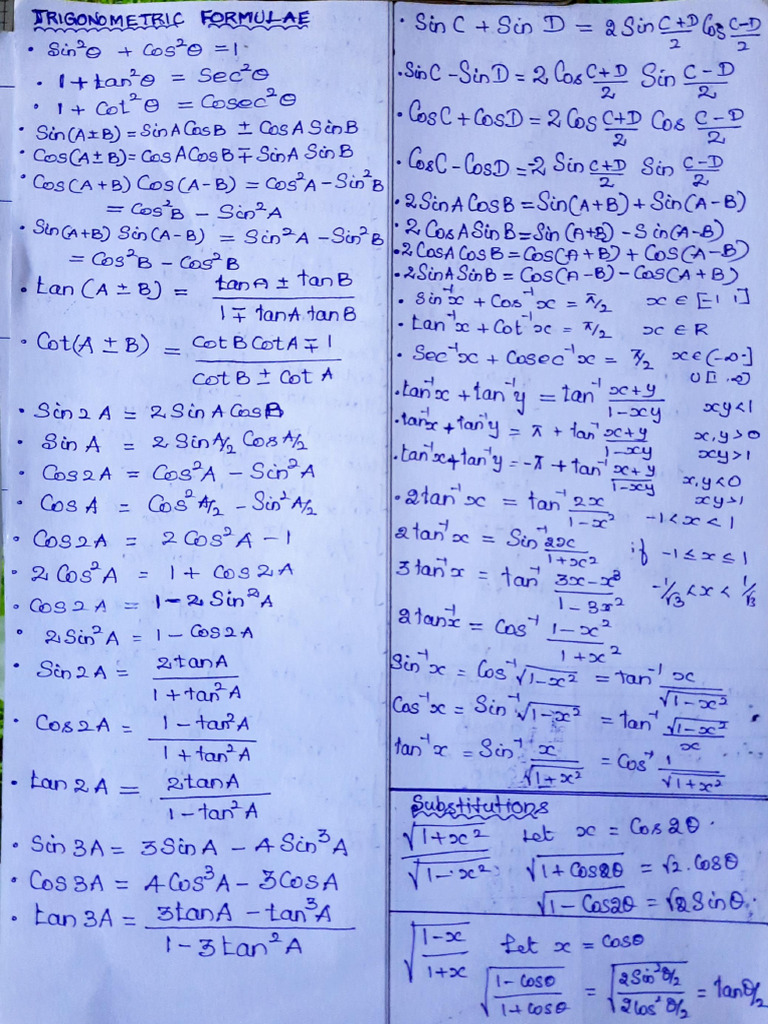 TRIGONOMETRIC FORMULAE
• Sin²θ + Cos²θ = 1.
• 1 + tan²θ = Sec²θ
• 1 + Cot²θ = Cosec²θ
• Sin(A±B) = SinA CosB ± CosA SinB
• Cos(A±B) = CosA CosB ∓ SinA SinB
• Cos(A+B) Cos(A-B) = Cos²A - Sin²B
= Cos²B - Sin²A
• Sin(A+B) Sin(A-B) = Sin²A - Sin²B
= Cos²B - Cos²B
• tan(A±B) = (tanA ± tanB)/(1 ∓ tanA tanB)
• Cot(A±B) = (CotB CotA ∓ 1)/(CotB ± CotA)
• Sin2A = 2 SinA CosB
• SinA = 2 SinA/2 CosA/2
• Cos2A = Cos²A - Sin²A
• CosA = Cos²A/2 - Sin²A/2
• Cos2A = 2Cos²A - 1
• 2Cos²A = 1 + Cos2A
• Cos2A = 1 - 2Sin²A
• 2Sin²A = 1 - Cos2A
• Sin2A = 2tanA/(1 + tan²A)
• Cos2A = (1 - tan²A)/(1 + tan²A)
• tan2A = 2tanA/(1 - tan²A)
• Sin3A = 3SinA - 4Sin³A
• Cos3A = 4Cos³A - 3CosA
• tan3A = (3tanA - tan³A)/(1 - 3tan²A)
• SinC + SinD = 2Sin (C+D)/2 Cos (C-D)/2
• SinC - SinD = 2Cos (C+D)/2 Sin (C-D)/2
• CosC + CosD = 2Cos (C+D)/2 Cos (C-D)/2
• CosC - CosD = -2Sin (C+D)/2 Sin (C-D)/2
• 2SinA CosB = Sin(A+B) + Sin(A-B)
• 2CosA SinB = Sin(A+B) - Sin(A-B)
• 2CosA CosB = Cos(A+B) + Cos(A-B)
• 2SinA SinB = Cos(A-B) - Cos(A+B)
• Sin⁻¹x + Cos⁻¹x = π/2 x∈[-1 1]
• tan⁻¹x + Cot⁻¹x = π/2 x∈R
• Sec⁻¹x + Cosec⁻¹x = π/2 x∈(-∞ -1]
∪[1 ∞)
• tan⁻¹x + tan⁻¹y = tan⁻¹ (x+y)/(1-xy) xy<1
• tan⁻¹x + tan⁻¹y = π + tan⁻¹ (x+y)/(1-xy) x,y>0 xy>1
• tan⁻¹x + tan⁻¹y = -π + tan⁻¹ (x+y)/(1-xy) x,y<0 xy>1
• 2tan⁻¹x = tan⁻¹ 2x/(1-x²) -1<x<1
2tan⁻¹x = Sin⁻¹ 2x/(1+x²) if -1≤x≤1
3tan⁻¹x = tan⁻¹ (3x-x³)/(1-3x²) -1/√3<x<1/√3
2tan⁻¹x = Cos⁻¹ (1-x²)/(1+x²)
Sin⁻¹x = Cos⁻¹√(1-x²) = tan⁻¹ x/√(1-x²)
Cos⁻¹x = Sin⁻¹√(1-x²) = tan⁻¹ √(1-x²)/x
tan⁻¹x = Sin⁻¹ x/√(1+x²) = Cos⁻¹ 1/√(1+x²)
Substitutions
√(1+x²)/√(1-x²) Let x = Cos2θ.
√(1+Cos2θ) = √2.Cosθ
√(1-Cos2θ) = √2Sinθ.
√((1-x)/(1+x)) Let x = Cosθ
√((1-Cosθ)/(1+Cosθ)) = √(2Sin²θ/2 / 2Cos²θ/2) = tanθ/2